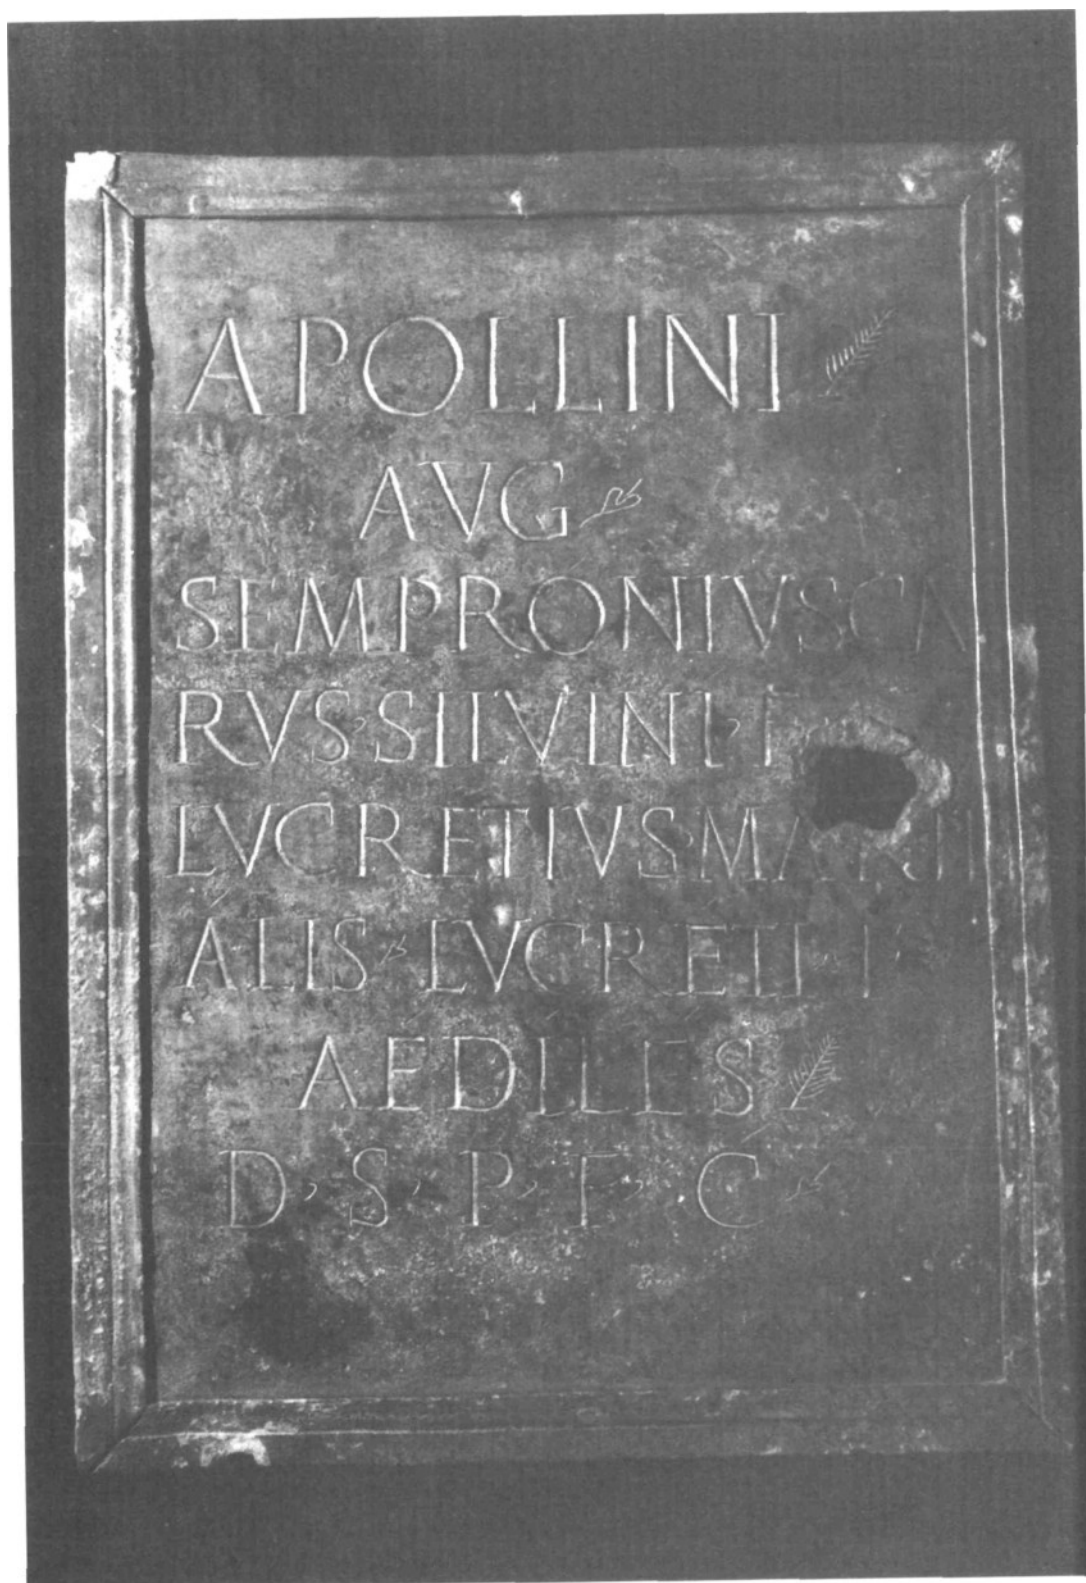 APOLLINI
AVG
SEMPRONIVSCA
RVS·SILVINI·F
LVCRETIVS·MARTI
ALIS·LVCRETI·F
AEDILES
D·S·P·F·C